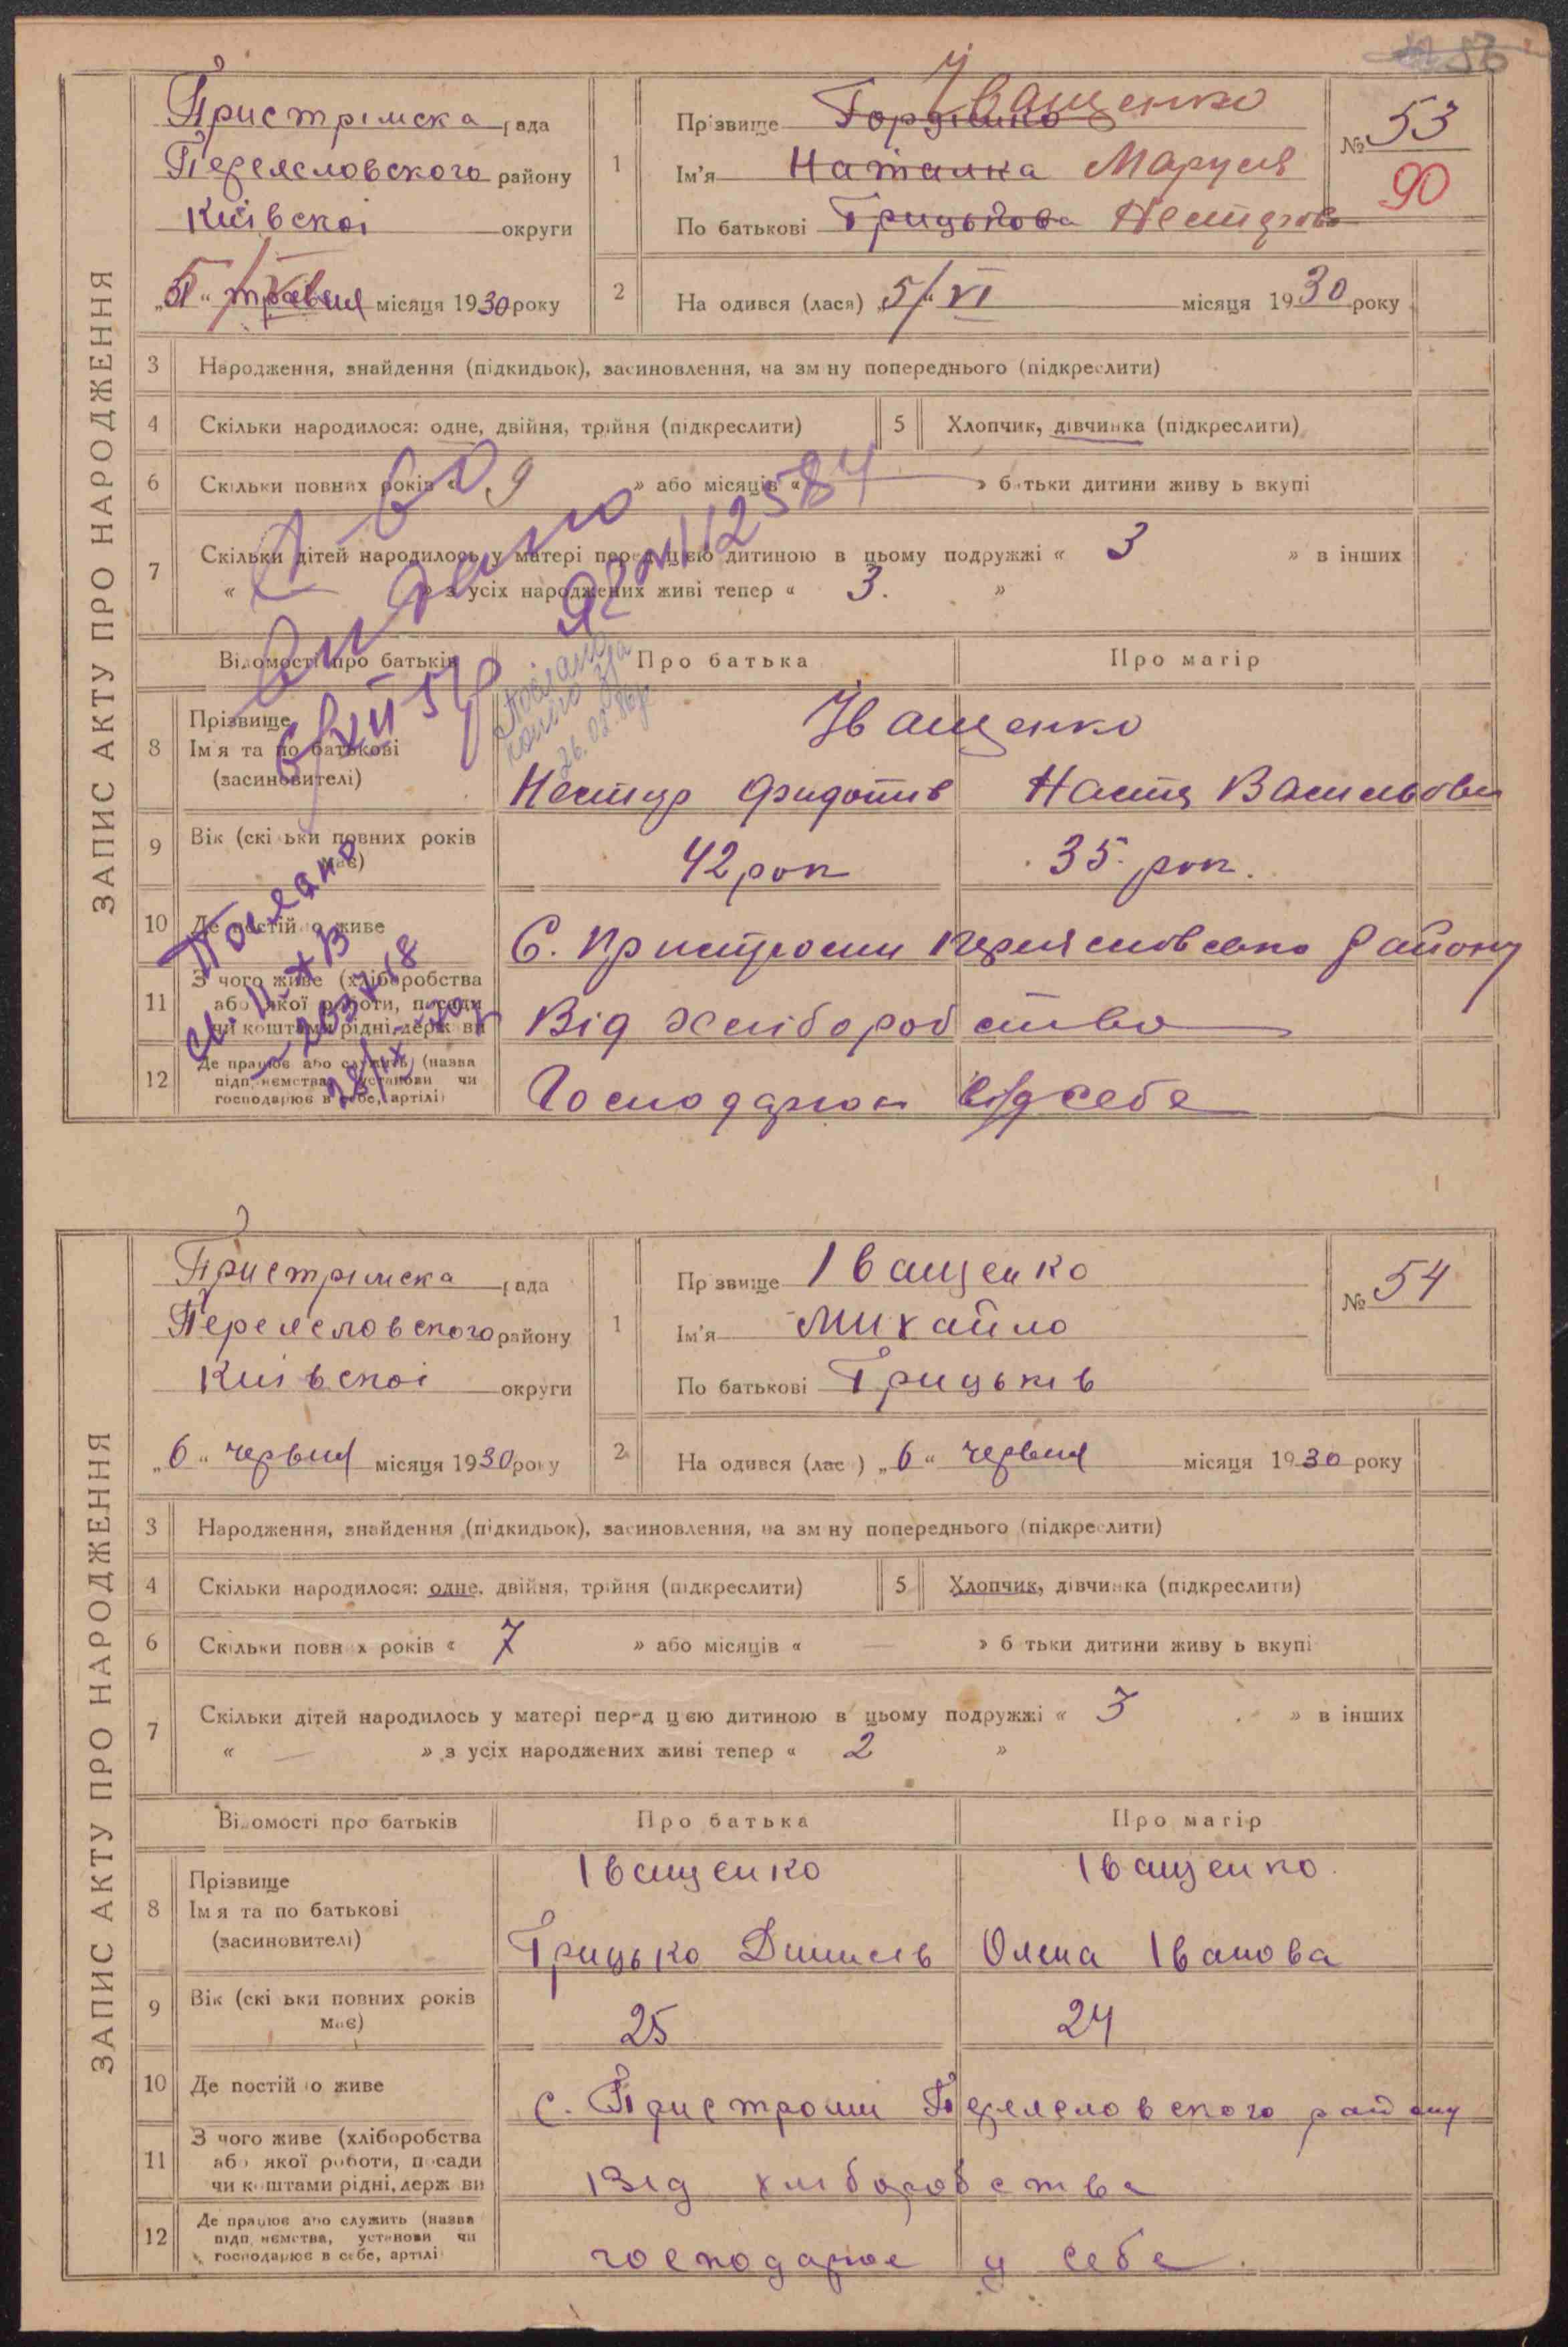 56
ЗАПИС АКТУ ПРО НАРОДЖЕННЯ
Пристрімска рада
Переясловского району
Київскоі округи
"5/VI" травня місяця 1930 року
1 Прізвище Гордієнко Іващенко
Ім'я Наталка Маруся
По батькові Грицькова Нестірова
№ 53
90
2 На одився (лася) „5/“ VI місяця 1930 року
3 Народження, знайдення (підкидьок), засиновлення, на зм ну попереднього (підкреслити)
4 Скільки народилося: одне, двійня, трійня (підкреслити)
5 Хлопчик, дівчинка (підкреслити)
6 Скільки повних років « 9 » або місяців « — » б тьки дитини живу ь вкупі
7 Скільки дітей народилось у матері перед цією дитиною в цьому подружжі « 3 » в інших
« » з усіх народжених живі тепер « 3. »
Відомості про батьків
Про батька
Про матір
8 Прізвище
Ім'я та по батькові
(засиновителі)
Іващенко
Нестір Фидотів Настя Васильова
9 Вік (скі ьки повних років має)
42 рок 35. рок.
10 Де постій о живе
С. Пристроми Переясловского району
11 З чого живе (хліборобства
або якої роботи, посади
чи коштами рідні, держ ви
Від хліборобства
12 Де працює або служить (назва
підп иємства, установи чи
господарює в себе, артілі)
Господарює від себе
видано
92 № 112584
Послано
26.02.86р
Послано
ЗАПИС АКТУ ПРО НАРОДЖЕННЯ
Пристрімска рада
Переясловского району
Київскоі округи
„6“ червня місяця 1930 року
1 Пр звище Іващенко
Ім'я Михайло
По батькові Грицьків
№ 54
2 На одився (лас ) „6“ червня місяця 1930 року
3 Народження, знайдення (підкидьок), засиновлення, на зм ну попереднього (підкреслити)
4 Скільки народилося: одне, двійня, трійня (підкреслити)
5 Хлопчик, дівчинка (підкреслити)
6 Скільки повн х років « 7 » або місяців « — » б тьки дитини живу ь вкупі
7 Скільки дітей народилось у матері перед цією дитиною в цьому подружжі « 3 » в інших
« — » з усіх народжених живі тепер « 2 »
Відомості про батьків
Про батька
Про матір
8 Прізвище
Ім'я та по батькові
(засиновителі)
Іващенко Іващенко.
Грицько Динисів Олена Іванова
9 Вік (скі ьки повних років має)
25 24
10 Де постій о живе
с. Пристроми Переясловского району
11 З чого живе (хліборобства
або якої роботи, посади
чи к штами рідні, держ ви
Від хліборобства
12 Де працює або служить (назва
підп иємства, установи чи
господарює в себе, артілі
господарює у себе.